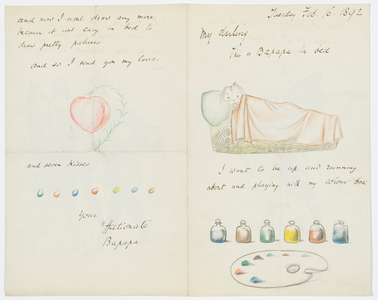 Tuesday Feb. 16. 1892
My darling
This is Bapapa in bed
I want to be up and running
about and playing with my colour box
and now I wont draw any more
because it isnt easy in bed to
draw pretty pictures
and so I send you my love.
and seven kisses
Your
affectionate
Bapapa